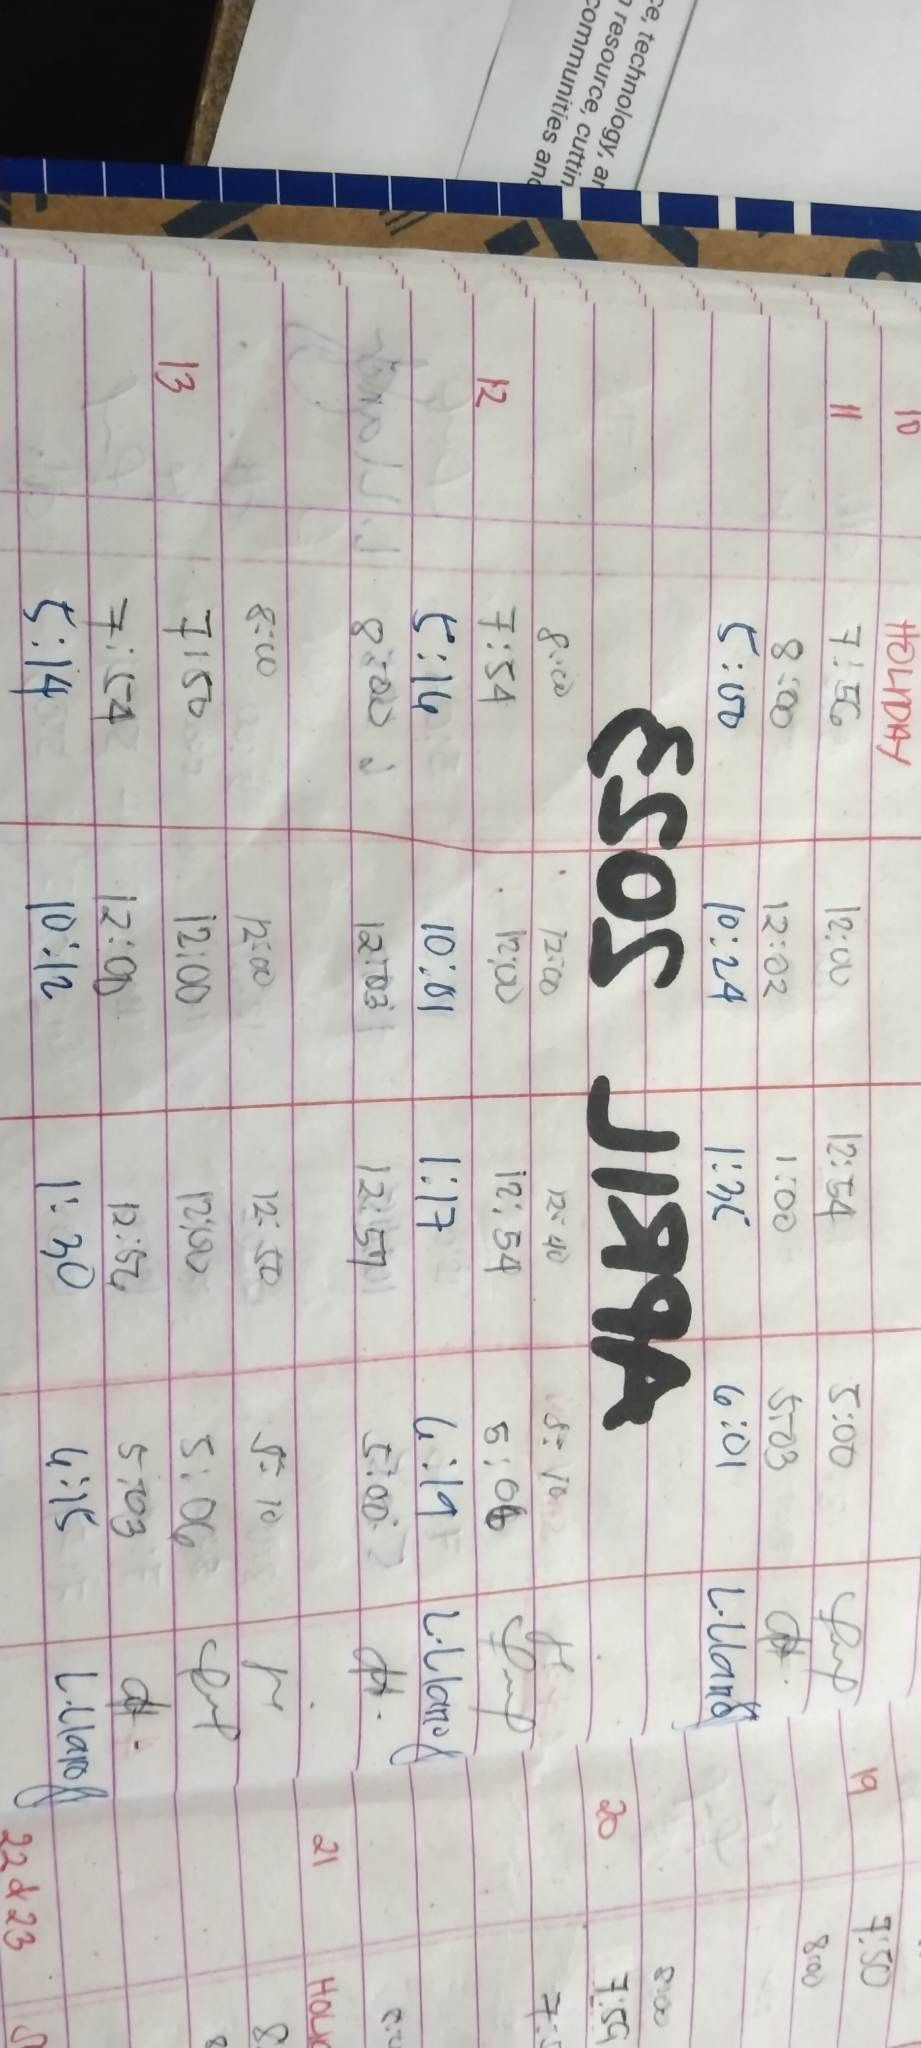 ce, technology, ar
resource, cuttin
communities and
10 HOLIDAY
11 7:56 12:00 12:54 5:00
8:00 12:02 1:00 5:03
5:00 10:24 1:35 6:01 L.Llano
APRIL 2023
8:00 12:00 12:40 5:10
12 7:54 12:00 12:54 5:06
5:14 10:01 1:17 4:19 L.Llano
8:00 12:03 12:59 5:00
8:00 12:00 12:50 5:10
13 7:50 12:00 12:50 5:06
7:54 12:00 12:56 5:03
5:14 10:12 1:30 4:15 L.Llano
19 7:50
8:00
8:00
20 7:59
21
22 & 23